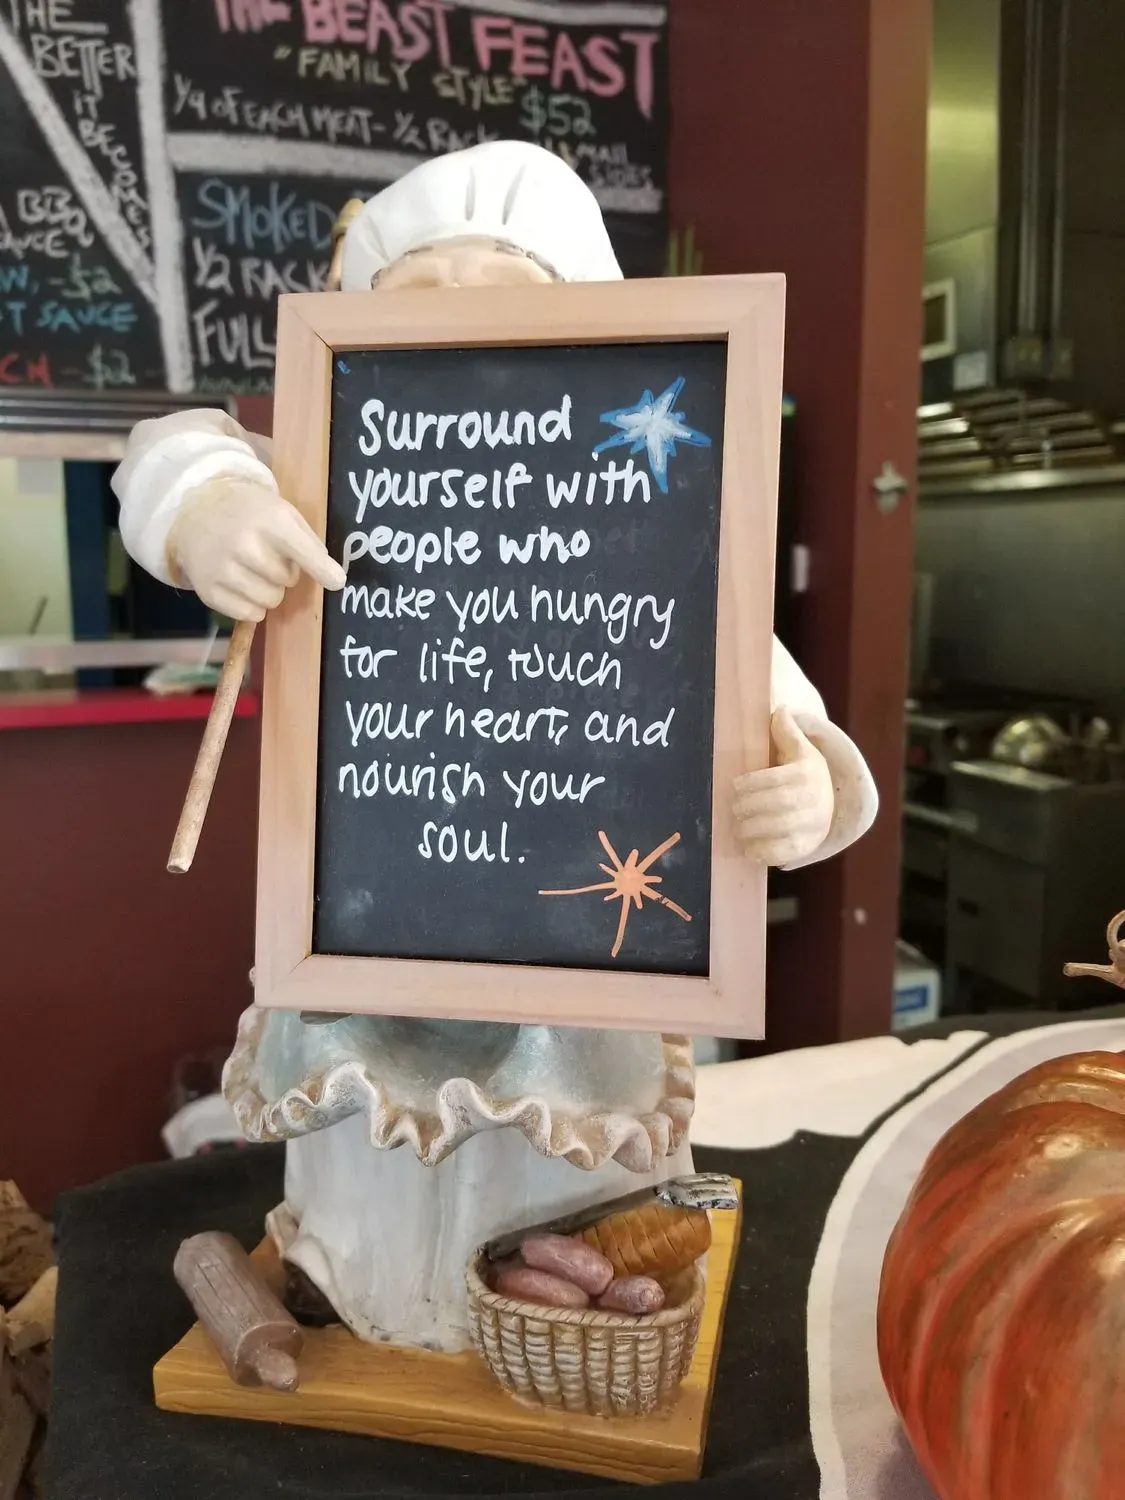 THE
BETTER
IT
BECOMES
BBQ
THE BEAST FEAST
"FAMILY STYLE"
$52
1/4 OF EACH MEAT - 1/2 RACK
SMALL
SIDES
SMOKED
1/2 RACK
FULL
- $2
T SAUCE
- $2 -
Surround
yourself with
people who
make you hungry
for life, touch
your heart, and
nourish your
soul.